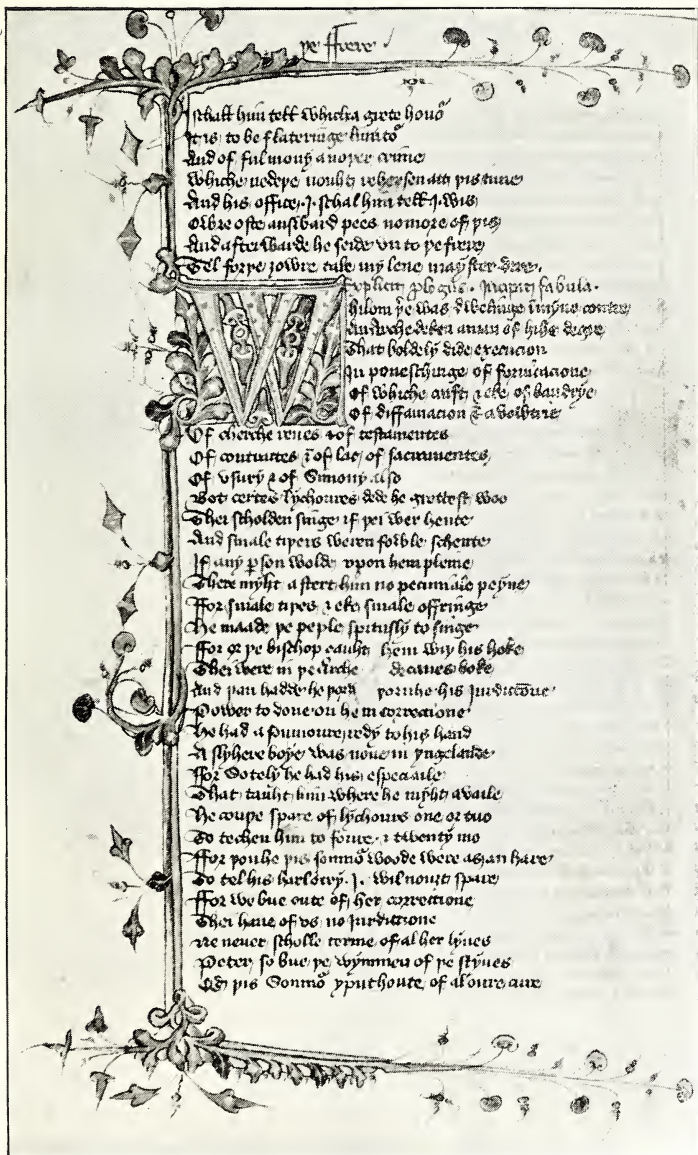 þe ffrere
I schall him tell whicha grete honour
It is to be flateringe limitour
And of ful mony anoþer crime
Whiche nedeþe nouht rehersen att þis time
And his office. I. schal him tell I. wis
Owre oste answard pees no more of þis
And afterwarde he seide vn to þe frere
Tel forþe ȝowre tale my leue mayster dere.
Explicit prologus. Incipit fabula.
Whilom þer was dwellinge in myne contre
An archedeken a man of hihe degre
That boldely dide execucion
In poneschinge of fornicacione
Of whiche craft & eke of baudrye
Of diffamacion & avowtrie
Of cherche reues & of testamentes
Of contractes & of lac, of sacramentes
Of vsury & of Simony also
Bot certes lychoures dede he grettest woo
Thei scholden singe if þei wer hente
And smale tiþers weren fowle schente
If any person wolde vpon hem pleine
There myht astert him no pecuniale peyne
ffor smale tiþes & eke smale offringe
He maade þe peple spitusly to singe
ffor or þe bischop cauht hem wiþ his hoke
Thei were in þe Arche decanes boke
And þan hadde he þorh his Iurdiccione
Power to done on hem correccione
He had a Sumoure redy to his hand
A slyhere boye was none in yngelande
ffor Sotely he had his especiaile
That tauht him where he myht availe
He couþe spare of lychours one or tuo
To techen him to foure. & twenty mo
ffor þouhe þis somnour woode were as an hare
To tel his harlotry. I. wil nouht spare
ffor we bue oute of her correccione
Thei haue of vs no iurdiccione
Ne neuer scholle terme of al her lyues
Peter, so bue þe wymmen of þe styues
Quod þis Somnour yput houte, of al oure cure